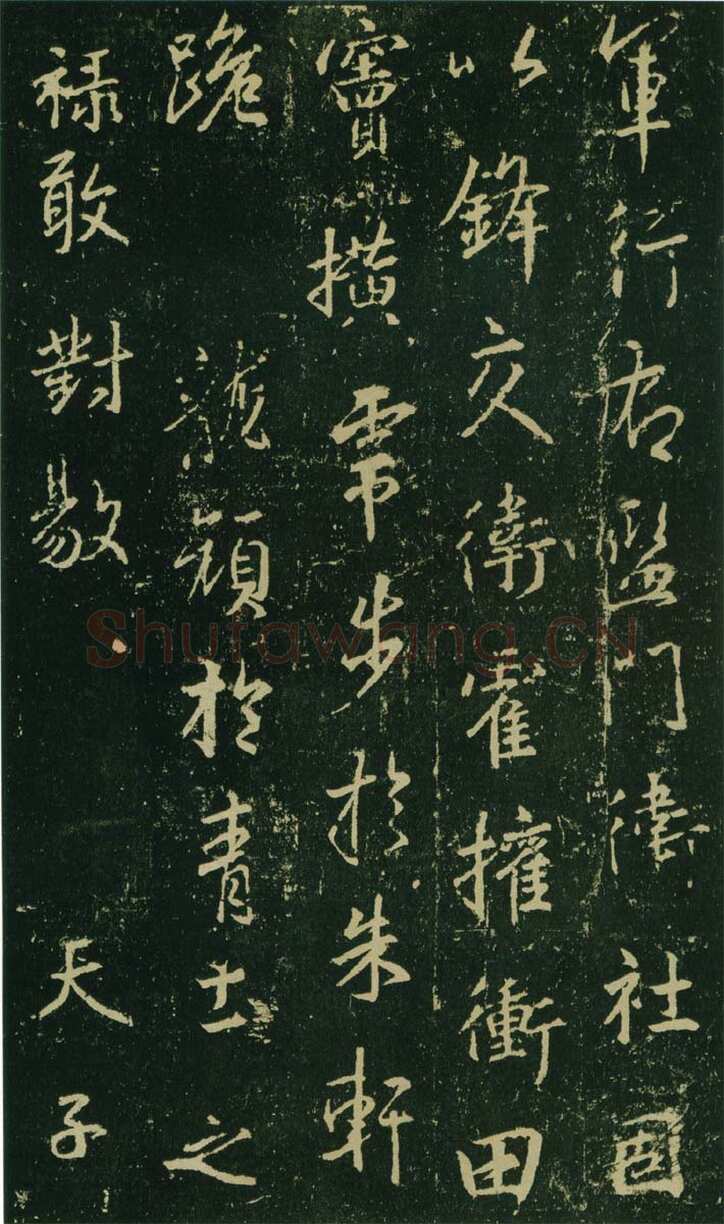 軍行右監門衛社固
以鋒交衛霍擁衝田
竇橫步於朱軒
龍於青土之
祿敢對敭 天子
Shufawang.CN